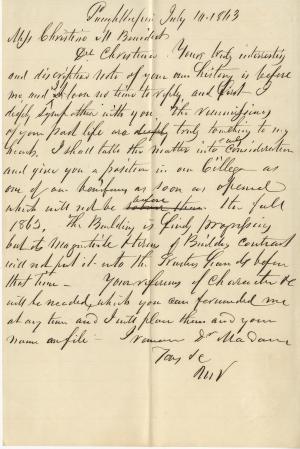 Poughkeepsie July 14. 1863
Miss Christine M Benedict
Dr Christine. Your truly interesting
and discriptive note of your own history is before
me and I loose no time to reply and first I
deeply Sympathise with you. The reminissings
of your past life are deeply truly touching to my
heart. I shall take the matter into Consideration
and give you a position in our College as
one of our as soon as opened
which will not be before the Fall
1865. The Building is finely progressing
but its Magnitude & terms of Building Contract
will not put it into the Trustees hands before
that time - Your referenses of Character &c
will be needed, which you can forward me
at any time and I will place them and your
name on file - I remain Dr Madam
Yours &c
MV